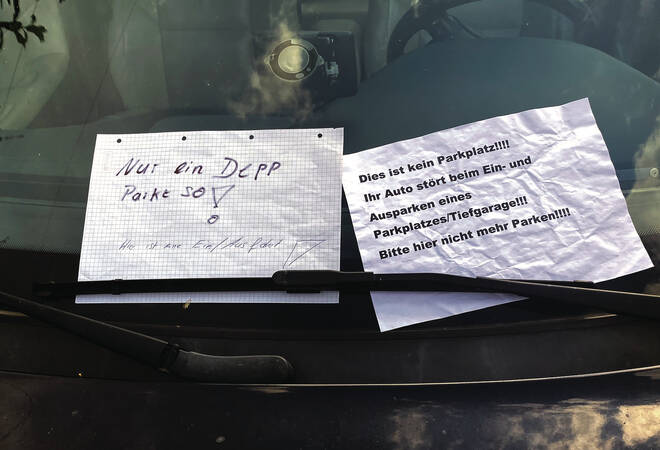 Nur ein DEPP
Parkt so!
Hier ist eine Ein/Ausfahrt!
Dies ist kein Parkplatz!!!!
Ihr Auto stört beim Ein- und
Ausparken eines
Parkplatzes/Tiefgarage!!!
Bitte hier nicht mehr Parken!!!!